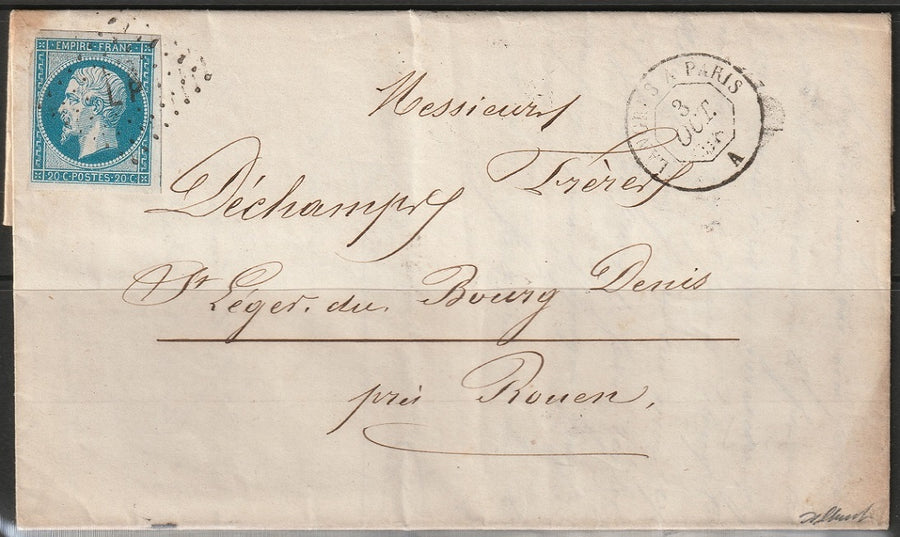 EMPIRE FRANC
20 C · POSTES · 20 C
LP
LANGRES A PARIS
3
OCT.
A
Messieurs
Déchamps Frères
St Léger. du. Bourg Denis
près Rouen,